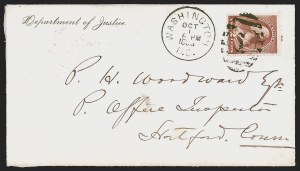 Department of Justice.
WASHINGTON
OCT
PM
D.C.
P. H. Woodward Esq
P. Office Inspector
Hartford, Conn.